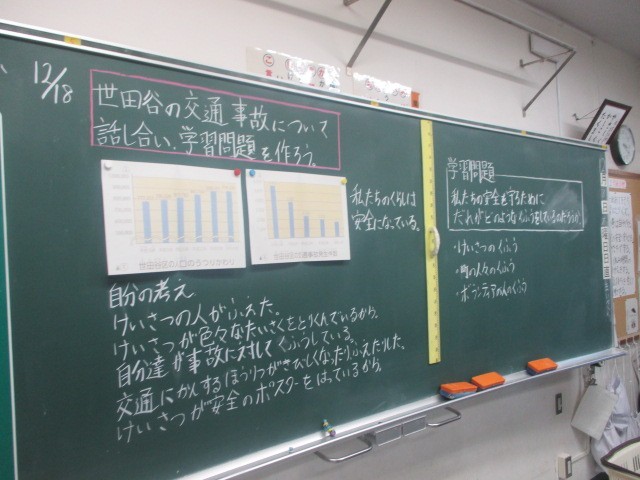 12/18
世田谷の交通事故について
話し合い、学習問題を作ろう。
世田谷区の人口のうつりかわり
私たちのくらしは
安全になっている。
自分の考え
けいさつの人がふえた。
けいさつが色々なたいさくをとりくんでいるから。
自分達が事故に対してくふうしている。
交通にかんするほうりつがきびしくなったりふえたりした。
けいさつが安全のポスターをはっているから
学習問題
私たちの安全を守るために
だれがどのようなくふうをしているのだろうか。
・けいさつのくふう
・町の人々のくふう
・ボランティアの人のくふう